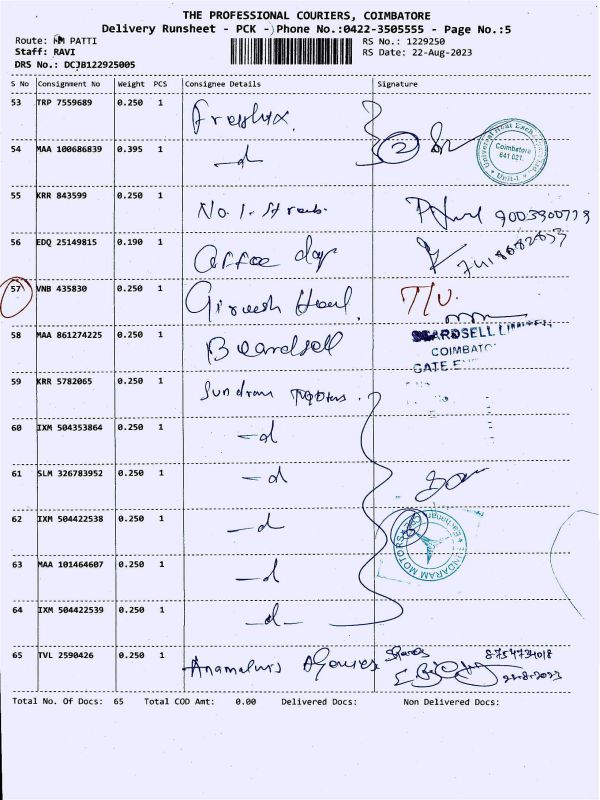 THE PROFESSIONAL COURIERS, COIMBATORE
Delivery Runsheet - PCK - Phone No.:0422-3505555 - Page No.:5
Route: HM PATTI RS No.: 1229250
Staff: RAVI RS Date: 22-Aug-2023
DRS No.: DCJB122925005
S No Consignment No Weight PCS Consignee Details Signature
53 TRP 7559689 0.250 1
54 MAA 100686839 0.395 1 —d 2
Universal Heat Exch
Coimbatore
641 021.
Unit-I
55 KRR 843599 0.250 1 No. 1.
56 EDQ 25149815 0.190 1 Coffee day
57 VNB 435830 0.250 1 Gireesh T/U.
58 MAA 861274225 0.250 1 Beardsell
BEARDSELL LIMITED
COIMBATO
GATE E
59 KRR 5782065 0.250 1 Sundram
60 IXM 504353864 0.250 1 —d
61 SLM 326783952 0.250 1 —d
62 IXM 504422538 0.250 1 —d 6
SUNDARAM MOTORS
63 MAA 101464607 0.250 1 —d
64 IXM 504422539 0.250 1 —d—
65 TVL 2590426 0.250 1 Anamalais Agencies
Total No. Of Docs: 65 Total COD Amt: 0.00 Delivered Docs: Non Delivered Docs: